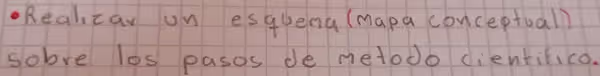 •Realizar un esquena (mapa conceptual)
sobre los pasos de metodo cientifico.